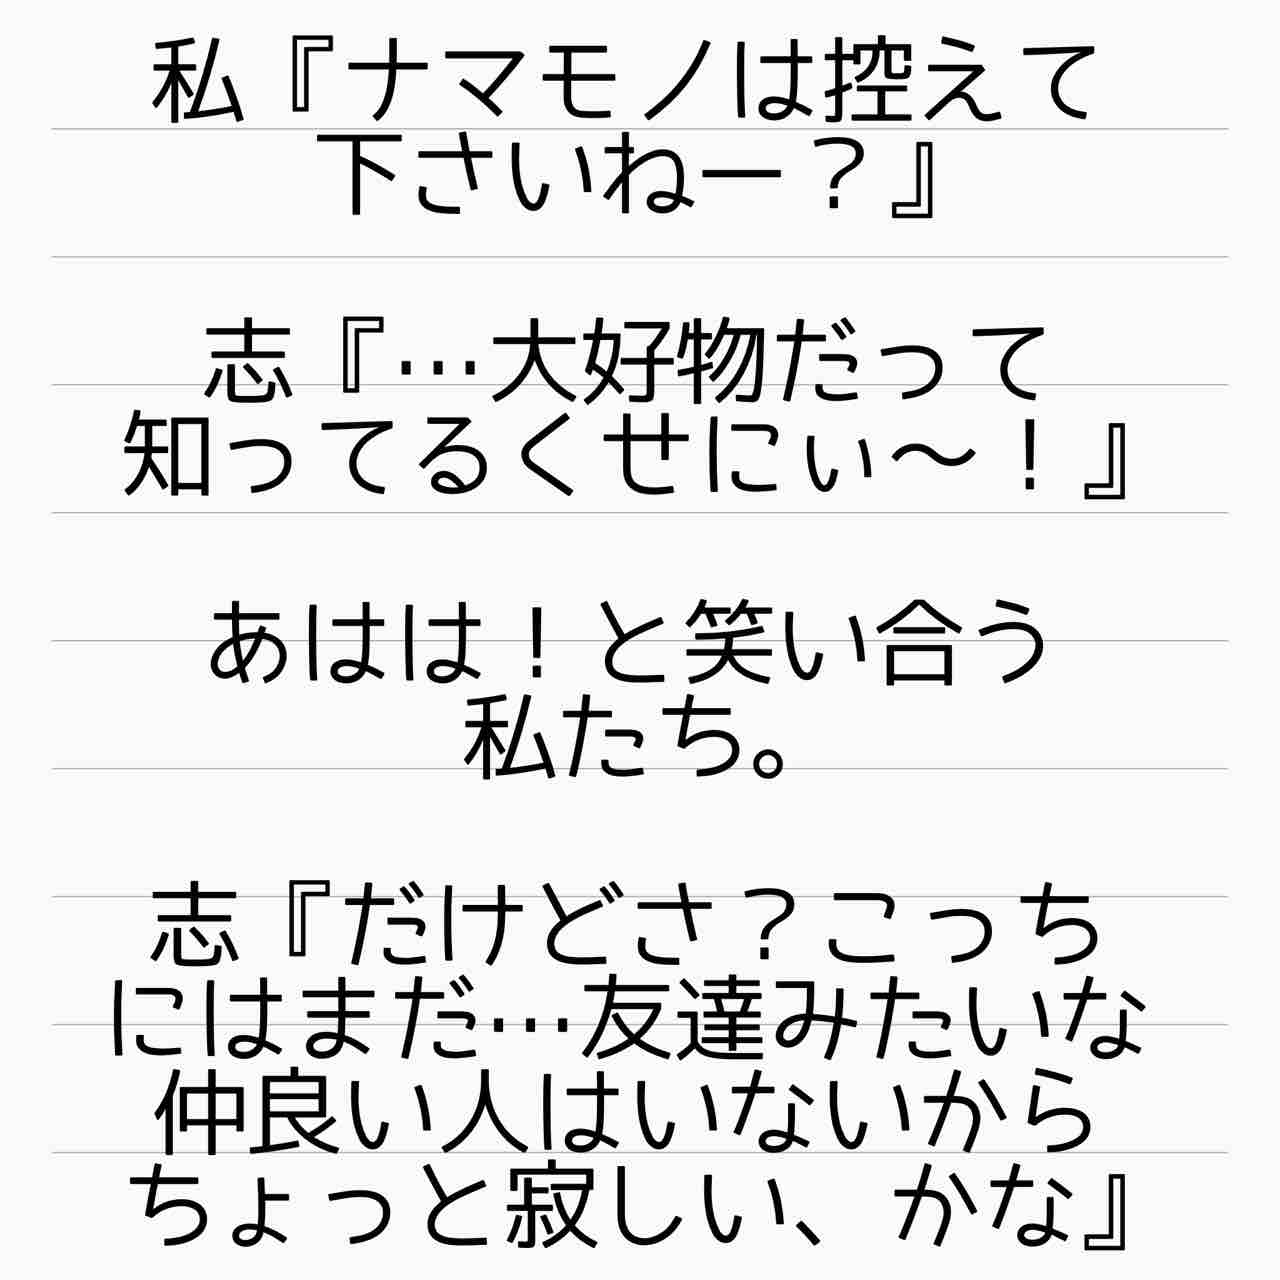 私『ナマモノは控えて
下さいねー？』
志『…大好物だって
知ってるくせにぃ〜！』
あはは！と笑い合う
私たち。
志『だけどさ？こっち
にはまだ…友達みたいな
仲良い人はいないから
ちょっと寂しい、かな』